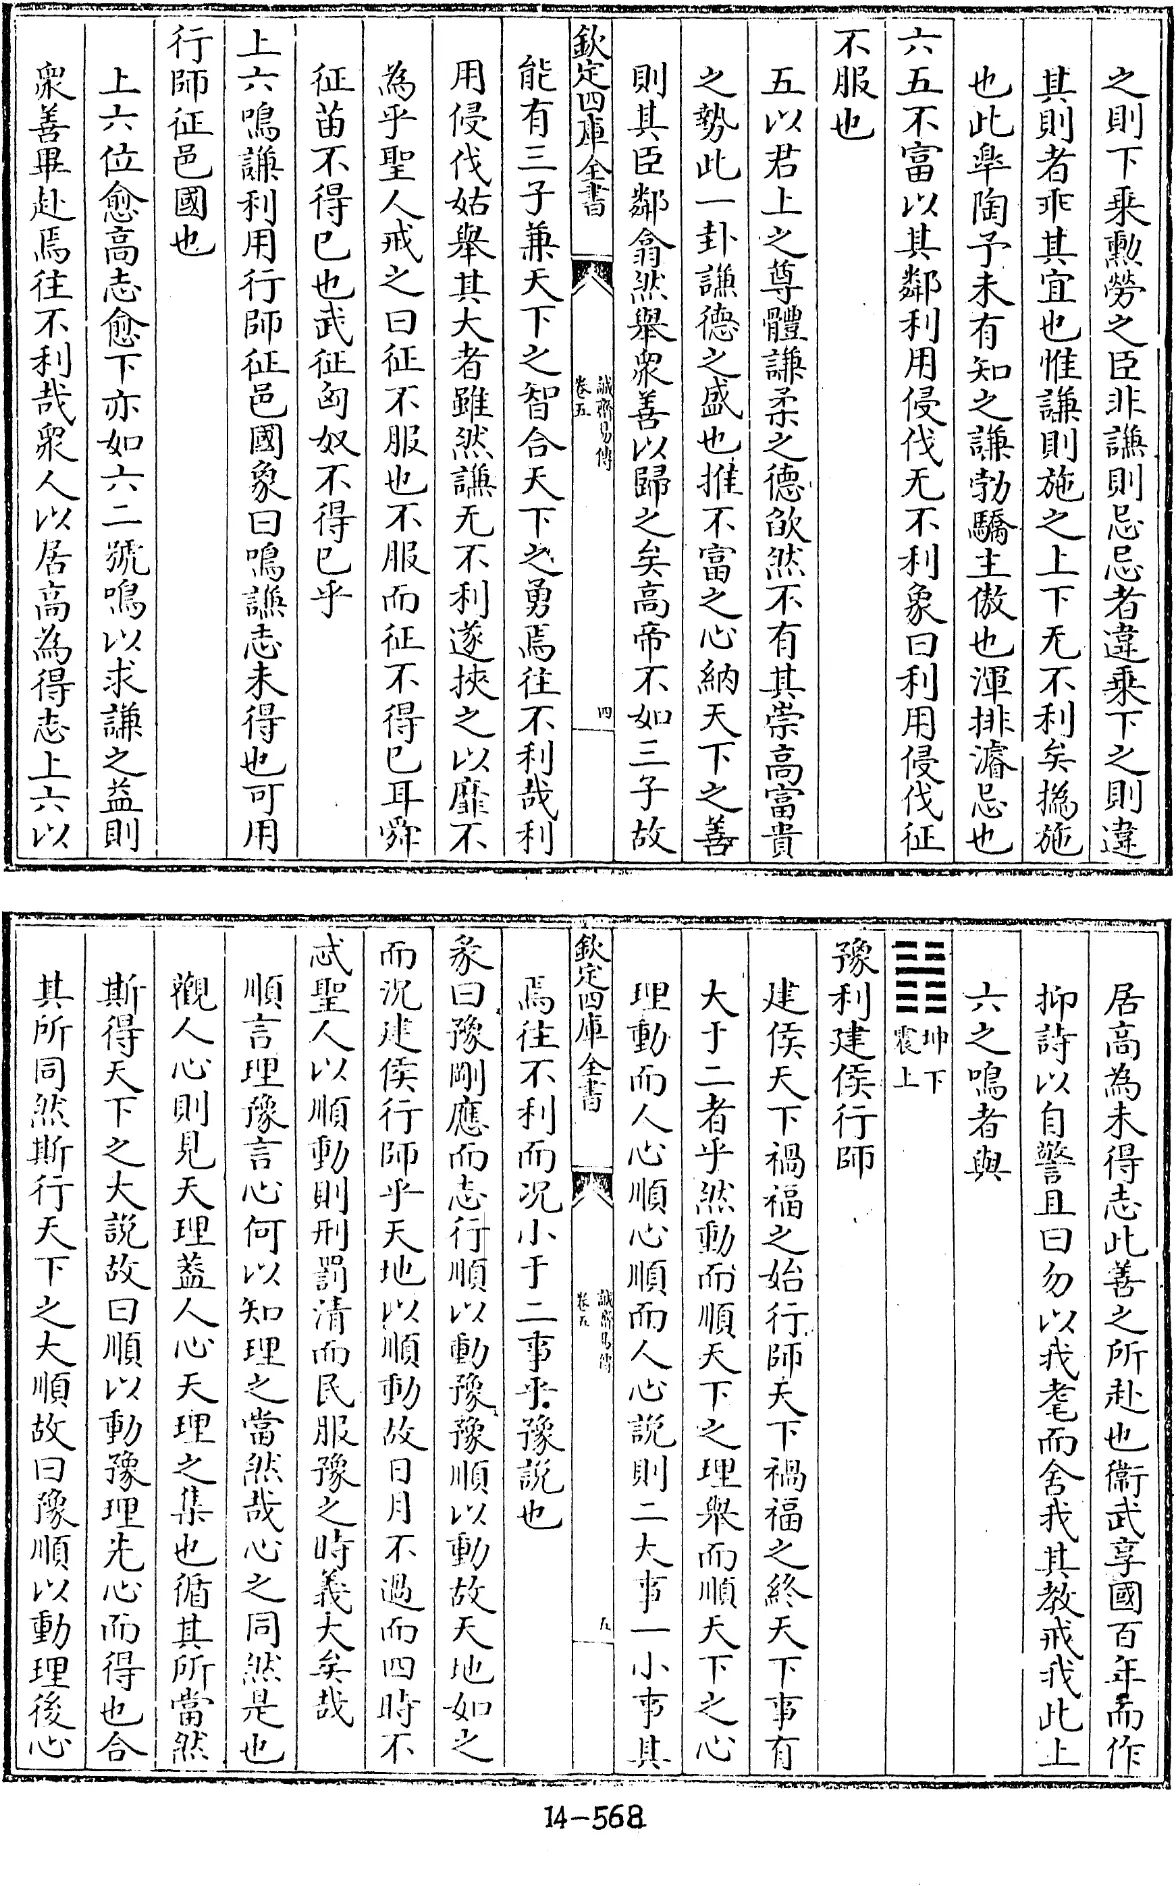 之則下乘勲勞之臣非謙則忌忌者違乗下之則違
其則者乖其宜也惟謙則施之上下无不利矣撝施
也此臯陶予未有知之謙勃驕主傲也渾排濬忌也
六五不富以其鄰利用侵伐无不利象曰利用侵伐征
不服也
五以君上之尊體謙柔之德欿然不有其崇高富貴
之勢此一卦謙德之盛也推不富之心納天下之善
則其臣鄰翕然舉衆善以歸之矣高帝不如三子故
欽定四庫全書
誠齋易傳
卷五
四
能有三子兼天下之智合天下之勇焉往不利哉利
用侵伐姑舉其大者雖然謙无不利遂挾之以靡不
為乎聖人戒之曰征不服也不服而征不得已耳舜
征苗不得已也武征匈奴不得已乎
上六鳴謙利用行師征邑國象曰鳴謙志未得也可用
行師征邑國也
上六位愈高志愈下亦如六二號鳴以求謙之益則
衆善畢赴焉往不利哉衆人以居高為得志上六以
居高為未得志此善之所赴也衞武享國百年而作
抑詩以自警且曰勿以我耄而舍我其教戒我此上
六之鳴者與
䷏坤下
震上
豫利建侯行師
建侯天下禍福之始行師天下禍福之終天下事有
大于二者乎然動而順天下之理舉而順天下之心
理動而人心順心順而人心説則二大事一小事其
欽定四庫全書
誠齋易傳
卷五
五
焉往不利而况小于二事乎豫説也
彖曰豫剛應而志行順以動豫豫順以動故天地如之
而況建侯行師乎天地以順動故日月不過而四時不
忒聖人以順動則刑罰清而民服豫之時義大矣哉
順言理豫言心何以知理之當然哉心之同然是也
觀人心則見天理葢人心天理之集也循其所當然
斯得天下之大説故曰順以動豫理先心而得也合
其所同然斯行天下之大順故曰豫順以動理後心
14-568